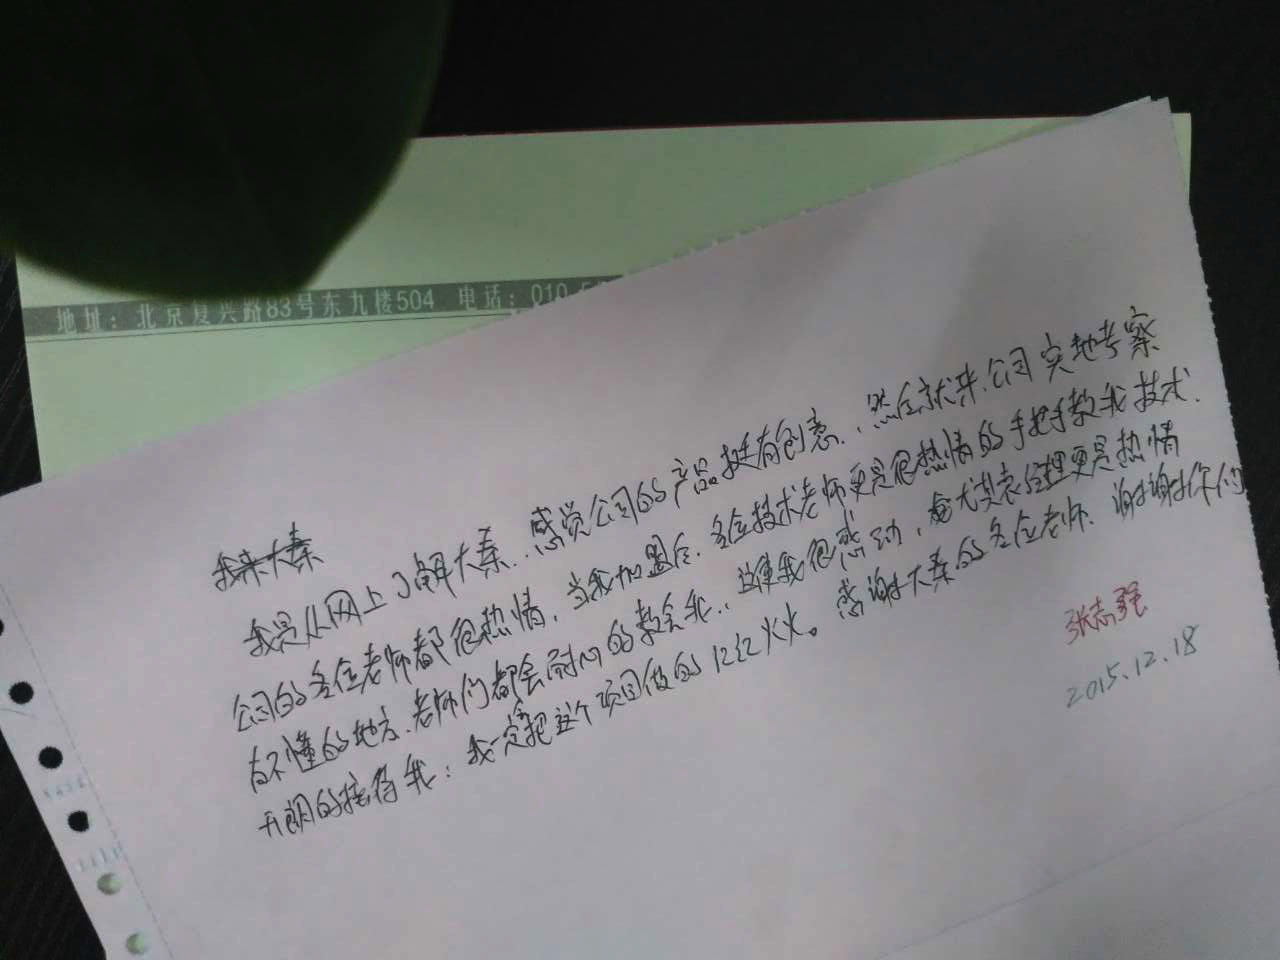 地址：北京复兴路83号东九楼504 电话：010
我来大秦
我是从网上了解大秦，感觉公司的产品挺有创意，然后就来公司实地考察
公司的各位老师都很热情，当我加盟后，各位技术老师更是很热情的手把手教我技术，
有不懂的地方，老师们都会耐心的教会我，这使我很感动，尤其袁经理更是热情
开朗的接待我；我一定把这个项目做的红红火火。感谢大秦的各位老师，谢谢你们
张志强
2015.12.18